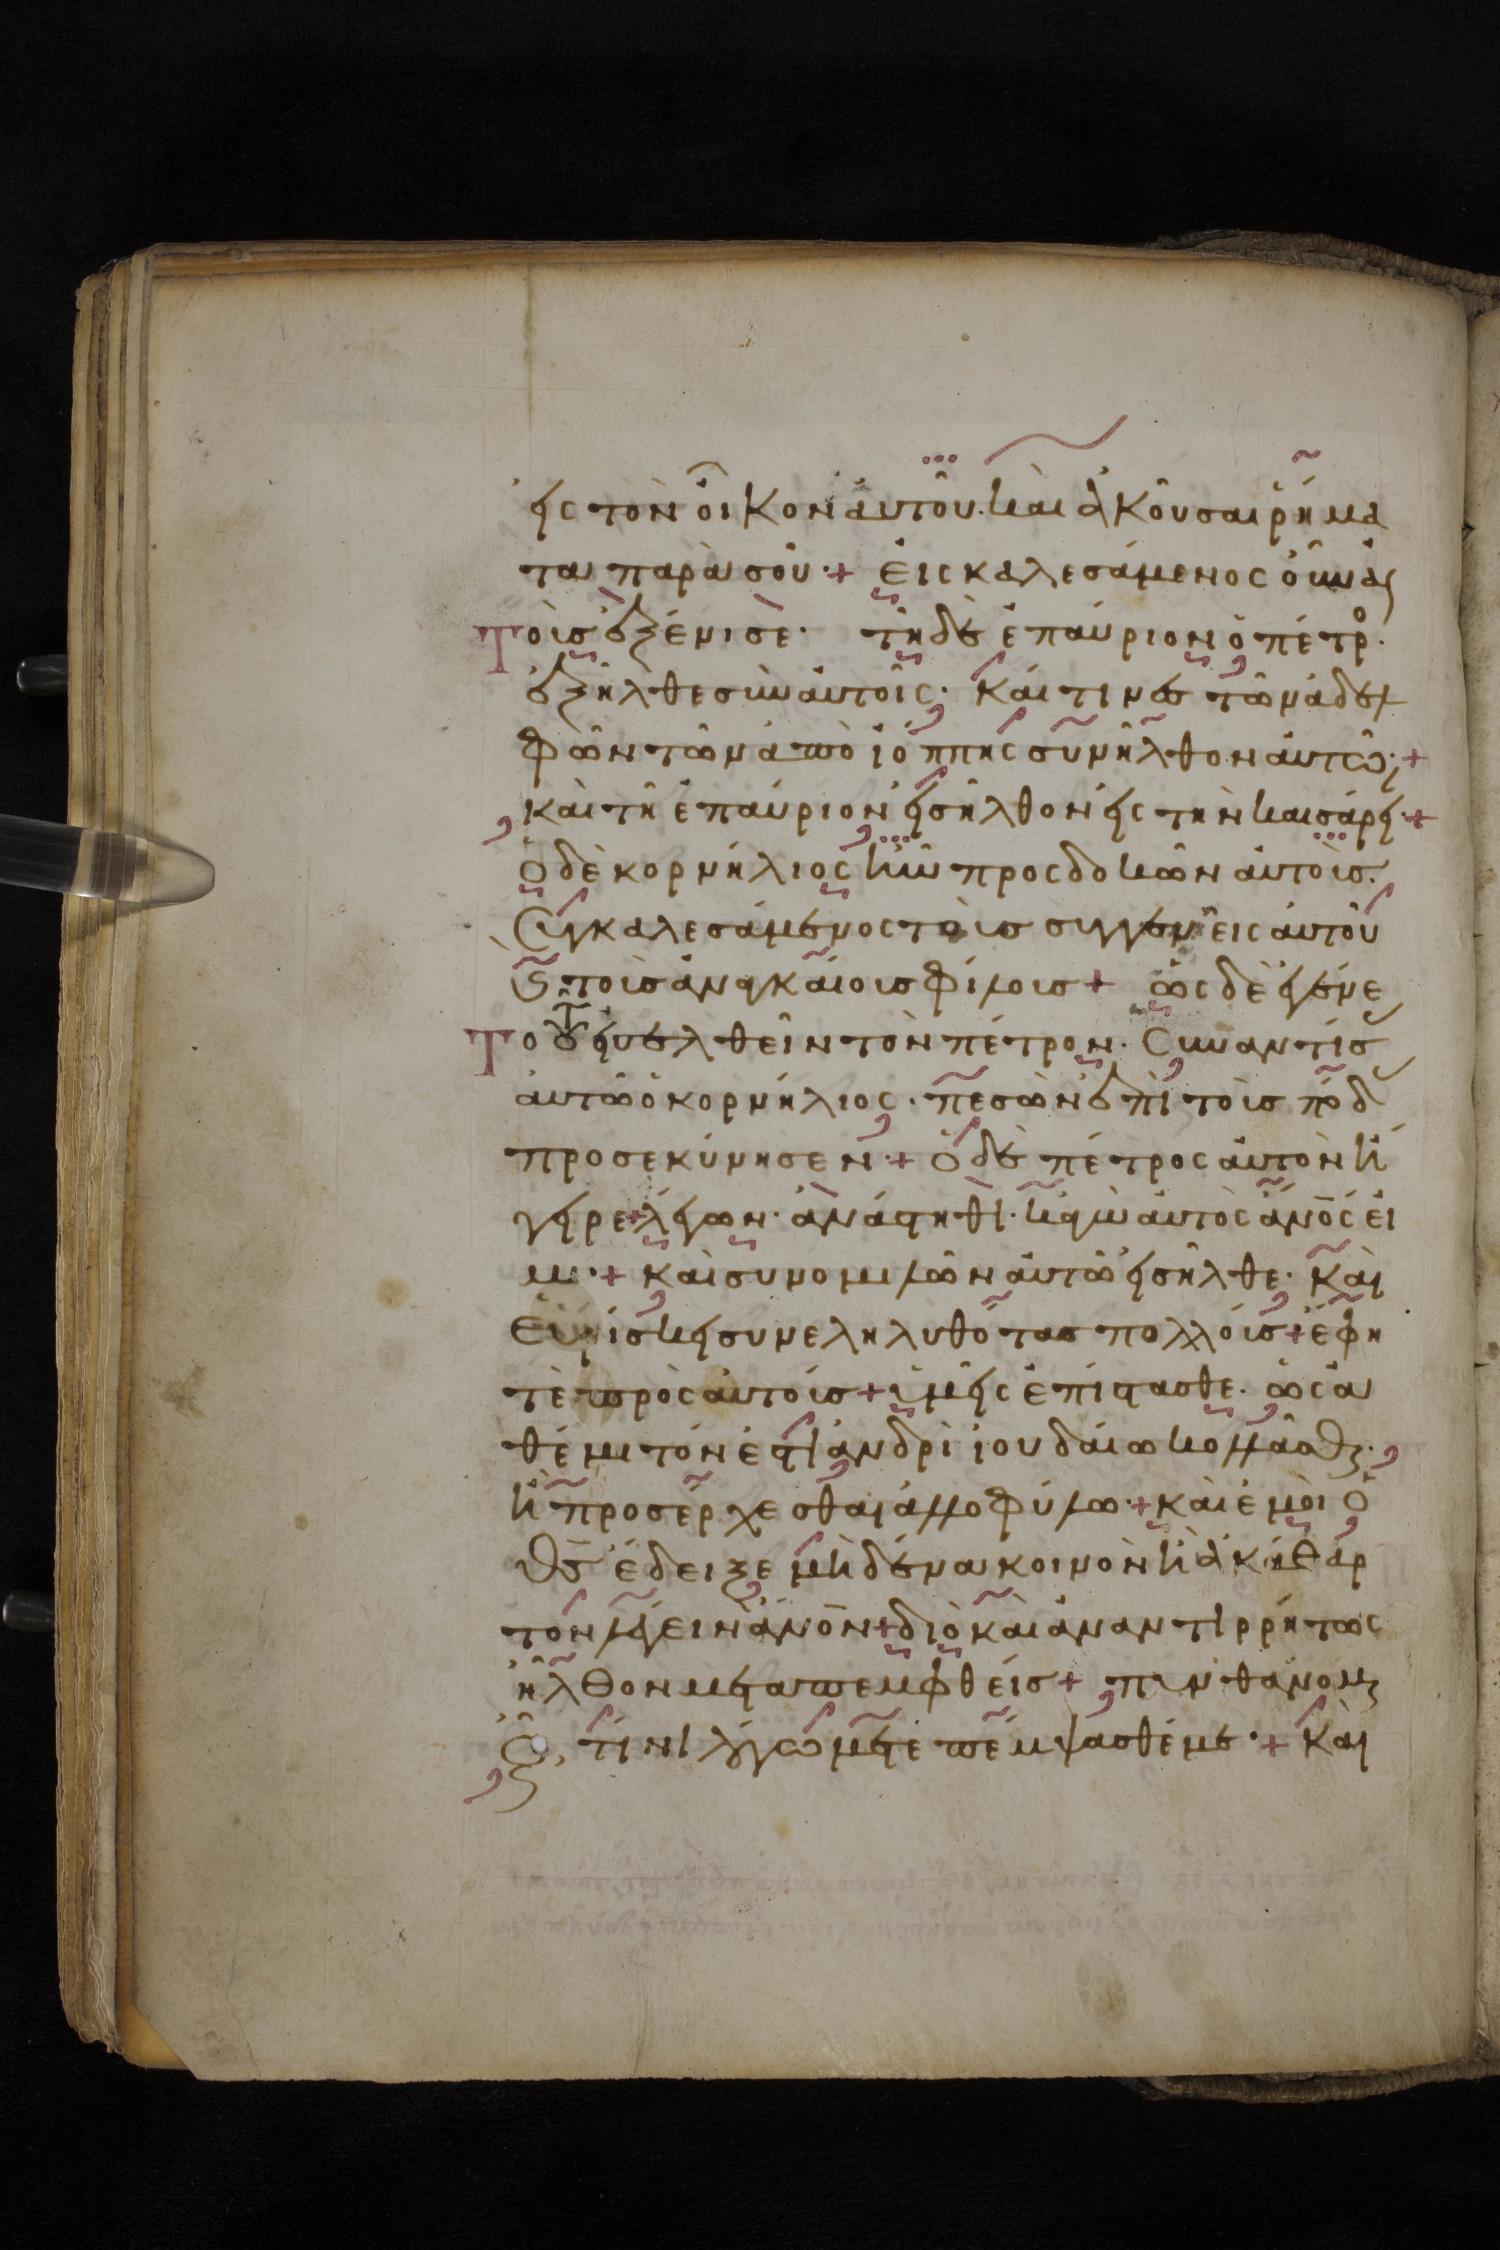 εἰς τὸν οἶκον αὐτοῦ. καὶ ἀκοῦσαι ῥήμα
τα παρὰ σοῦ·+ εἰσκαλεσάμενος οὖν αὐ
τοὺς ἐξένισε· τῆ δὲ ἐπαύριον ὁ πέτρο.
ἐξῆλθε σὺν αὐτοῖς· καί τινες τῶν ἀδελ
φῶν τῶν ἀπὸ ἰόππης συνῆλθον αὐτῶ·+
καὶ τῆ ἐπαύριον εἰσῆλθον εἰς τὴν καισάρει·+
ὁ δὲ κορνήλιος ἦν προςδοκῶν αὐτούς.
συγκαλεσάμενος τοὺς συγγενεῖς αὐτοῦ
ϛ τοὺς ἀναγκαίους φίλους+ ὡς δὲ ἐγένε
το τοῦ εἰσελθεῖν τὸν πέτρον. συναντήσ
αὐτῶ ὁ κορνήλιος. πεσὼν ἐπὶ τοὺς πόδ
προσεκύνησεν·+ ὁ δὲ πέτρος αὐτὸν ἤ
γειρε+λέγων· ἀνάστηθι· κἀγὼ αὐτὸς ἄνος εἰ
μι·+ καὶ συνομιλῶν αὐτῶ εἰσῆλθε· καὶ
εὑρίσκει συνεληλυθότας πολλούς+ἔφη
τε πρὸς αὐτούς+ὑμεῖς ἐπίστασθε. ὡς ἀ
θέμιτόν ἐστιν ἀνδρὶ ἰουδαίω κολλᾶσθαι·
ἢ προσέρχεσθαι ἀλλοφύλω·+καὶ ἐμοὶ ὁ
θς ἔδειξε μηδένα κοινὸν ἢ ἀκάθαρ
τον λέγειν ἄνον+διὸ καὶ ἀναντιρρήτως
ἦλθον μεταπεμφθείς+ πυνθάνομαι
οὖν, τίνι λόγω μετεπέμψασθέ με·+ καὶ